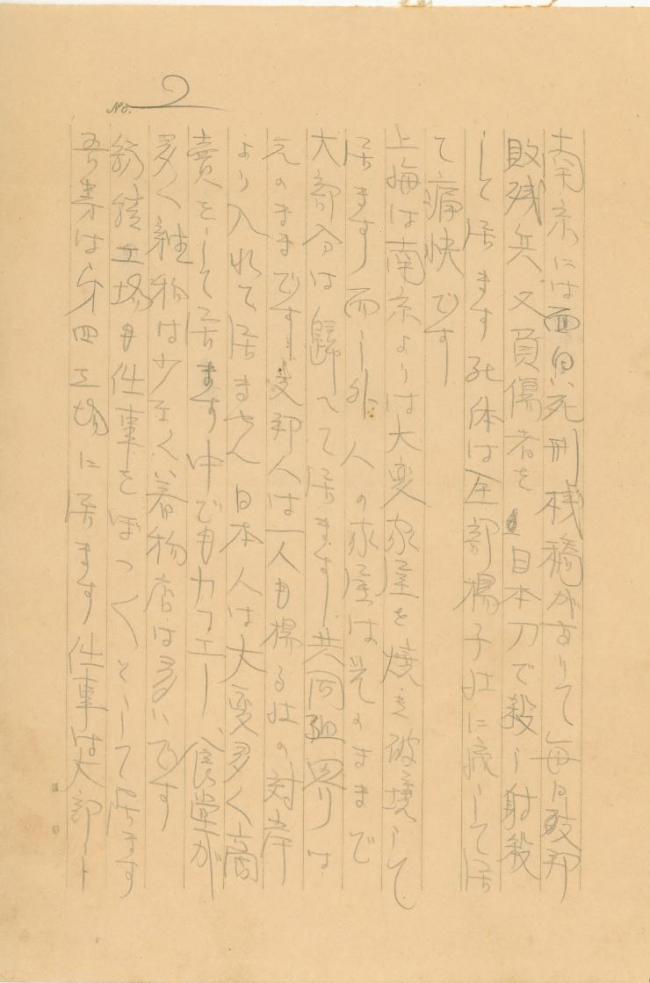 No. 2
南京には面白い死刑桟橋がありて毎日支那
敗残兵又負傷者を日本刀で殺し射殺
して居ます死体は全部揚子江に流して居
て痛快です
上海は南京よりは大変家屋を焼き破壊して
居ます而し外人の家屋は元のままで
大部分は歸へて居ます共同租界りは
元のままです支那人は一人も揚子江の対岸
より入れて居ません日本人は大変多く商
賣をして居ます中でもカフエー、食堂が
多く雑物は少なく着物店は多いです
紡績工場も仕事をぼつくとして居ます
吾等は第四工場に居ます仕事は大部ト